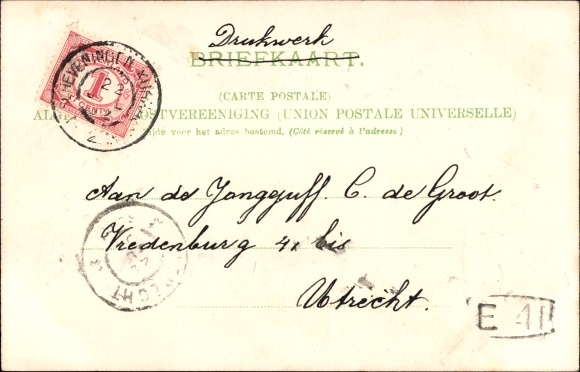 Drukwerk
BRIEFKAART.
(CARTE POSTALE)
POSTVEREENIGING (UNION POSTALE UNIVERSELLE)
voor het adres bestemd. (Côté réservé à l'adresse)
SCHEVENINGEN
1
CENT
Aan de Jongejuff. C. de Groot.
Vredenburg 4x bis
Utrecht.
E 41